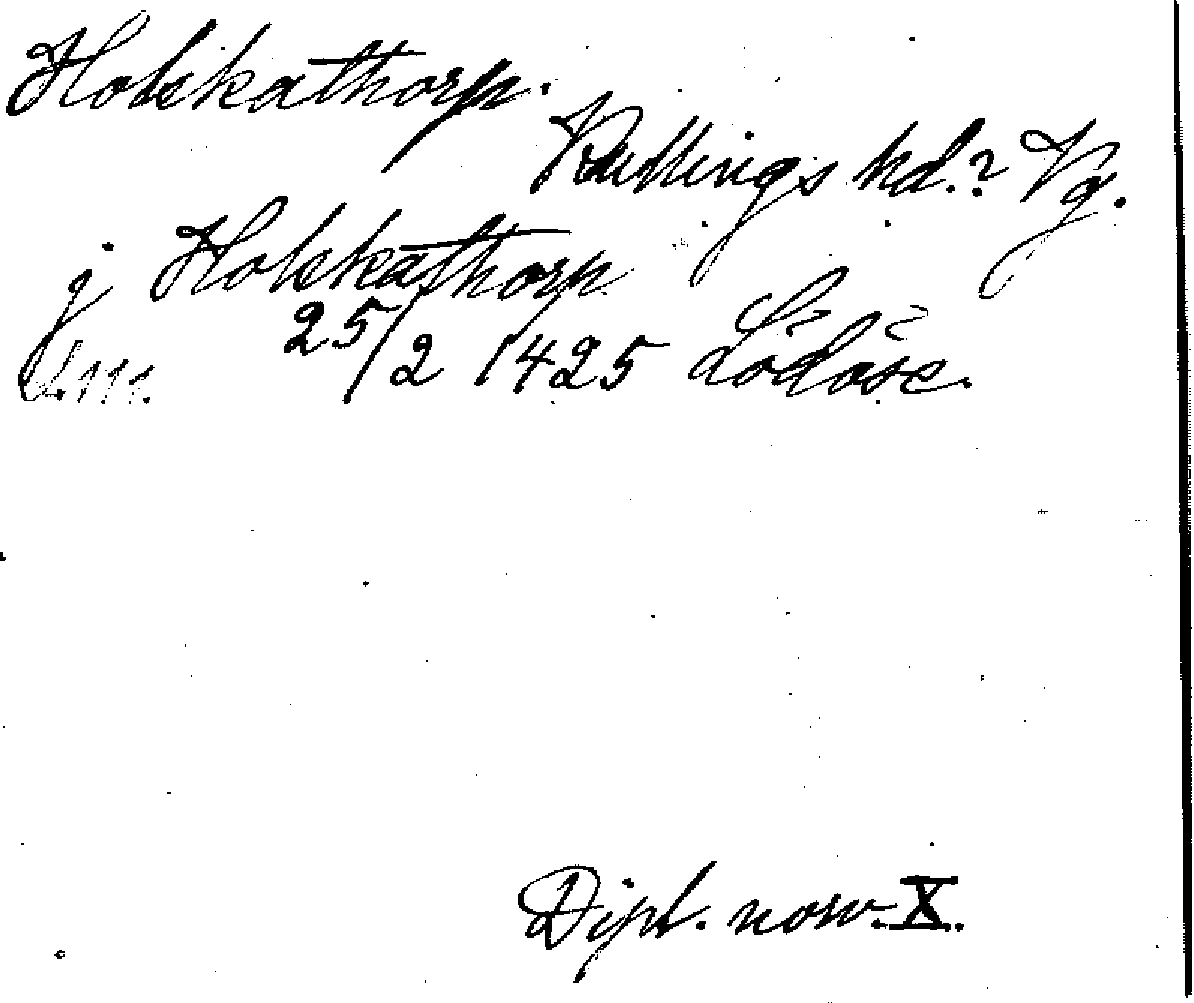 Holskathorp.
Kullings hd.? Vg.
j Holskathorp
25/2 1425 Lödöse.
Dipl. norv. X.